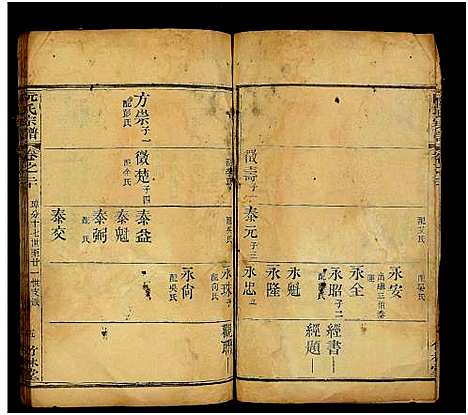 配艾氏
徵壽子一
泰元子三
永安
出繼三伯泰
蓮
配晏氏
永全
永昭子二
經書
經題
永魁
永隆
永忠
永珠
配何氏
永尚
配吳氏
方崇子一
配彭氏
徵楚子四
配李氏
泰益
泰魁
配吳氏
泰弼
泰交
阮氏宗譜
卷之二十
璋分十七世至廿一世支裁
五
竹林堂